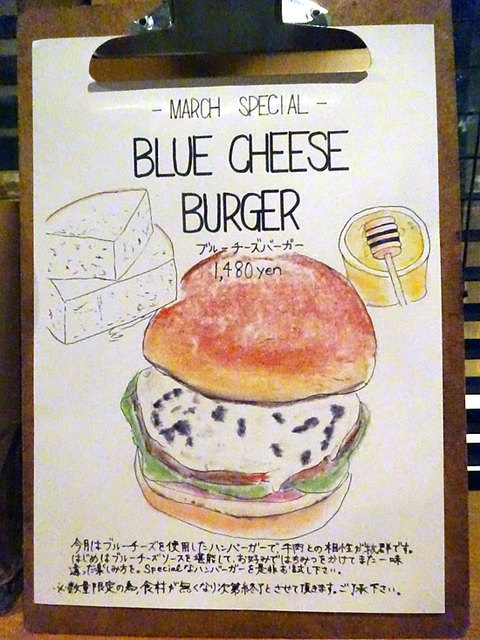 - MARCH SPECIAL -
BLUE CHEESE
BURGER
ブルーチーズバーガー
1,480 yen
今月はブルーチーズを使用したハンバーガーで、牛肉との相性が抜群です。
はじめはブルーチーズソースを堪能して、お好みではちみつをかけてまた一味
違った楽しみ方を。Specialなハンバーガーを是非お試し下さい。
※数量限定の為、食材が無くなり次第終了とさせて頂きます。ご了承下さい。